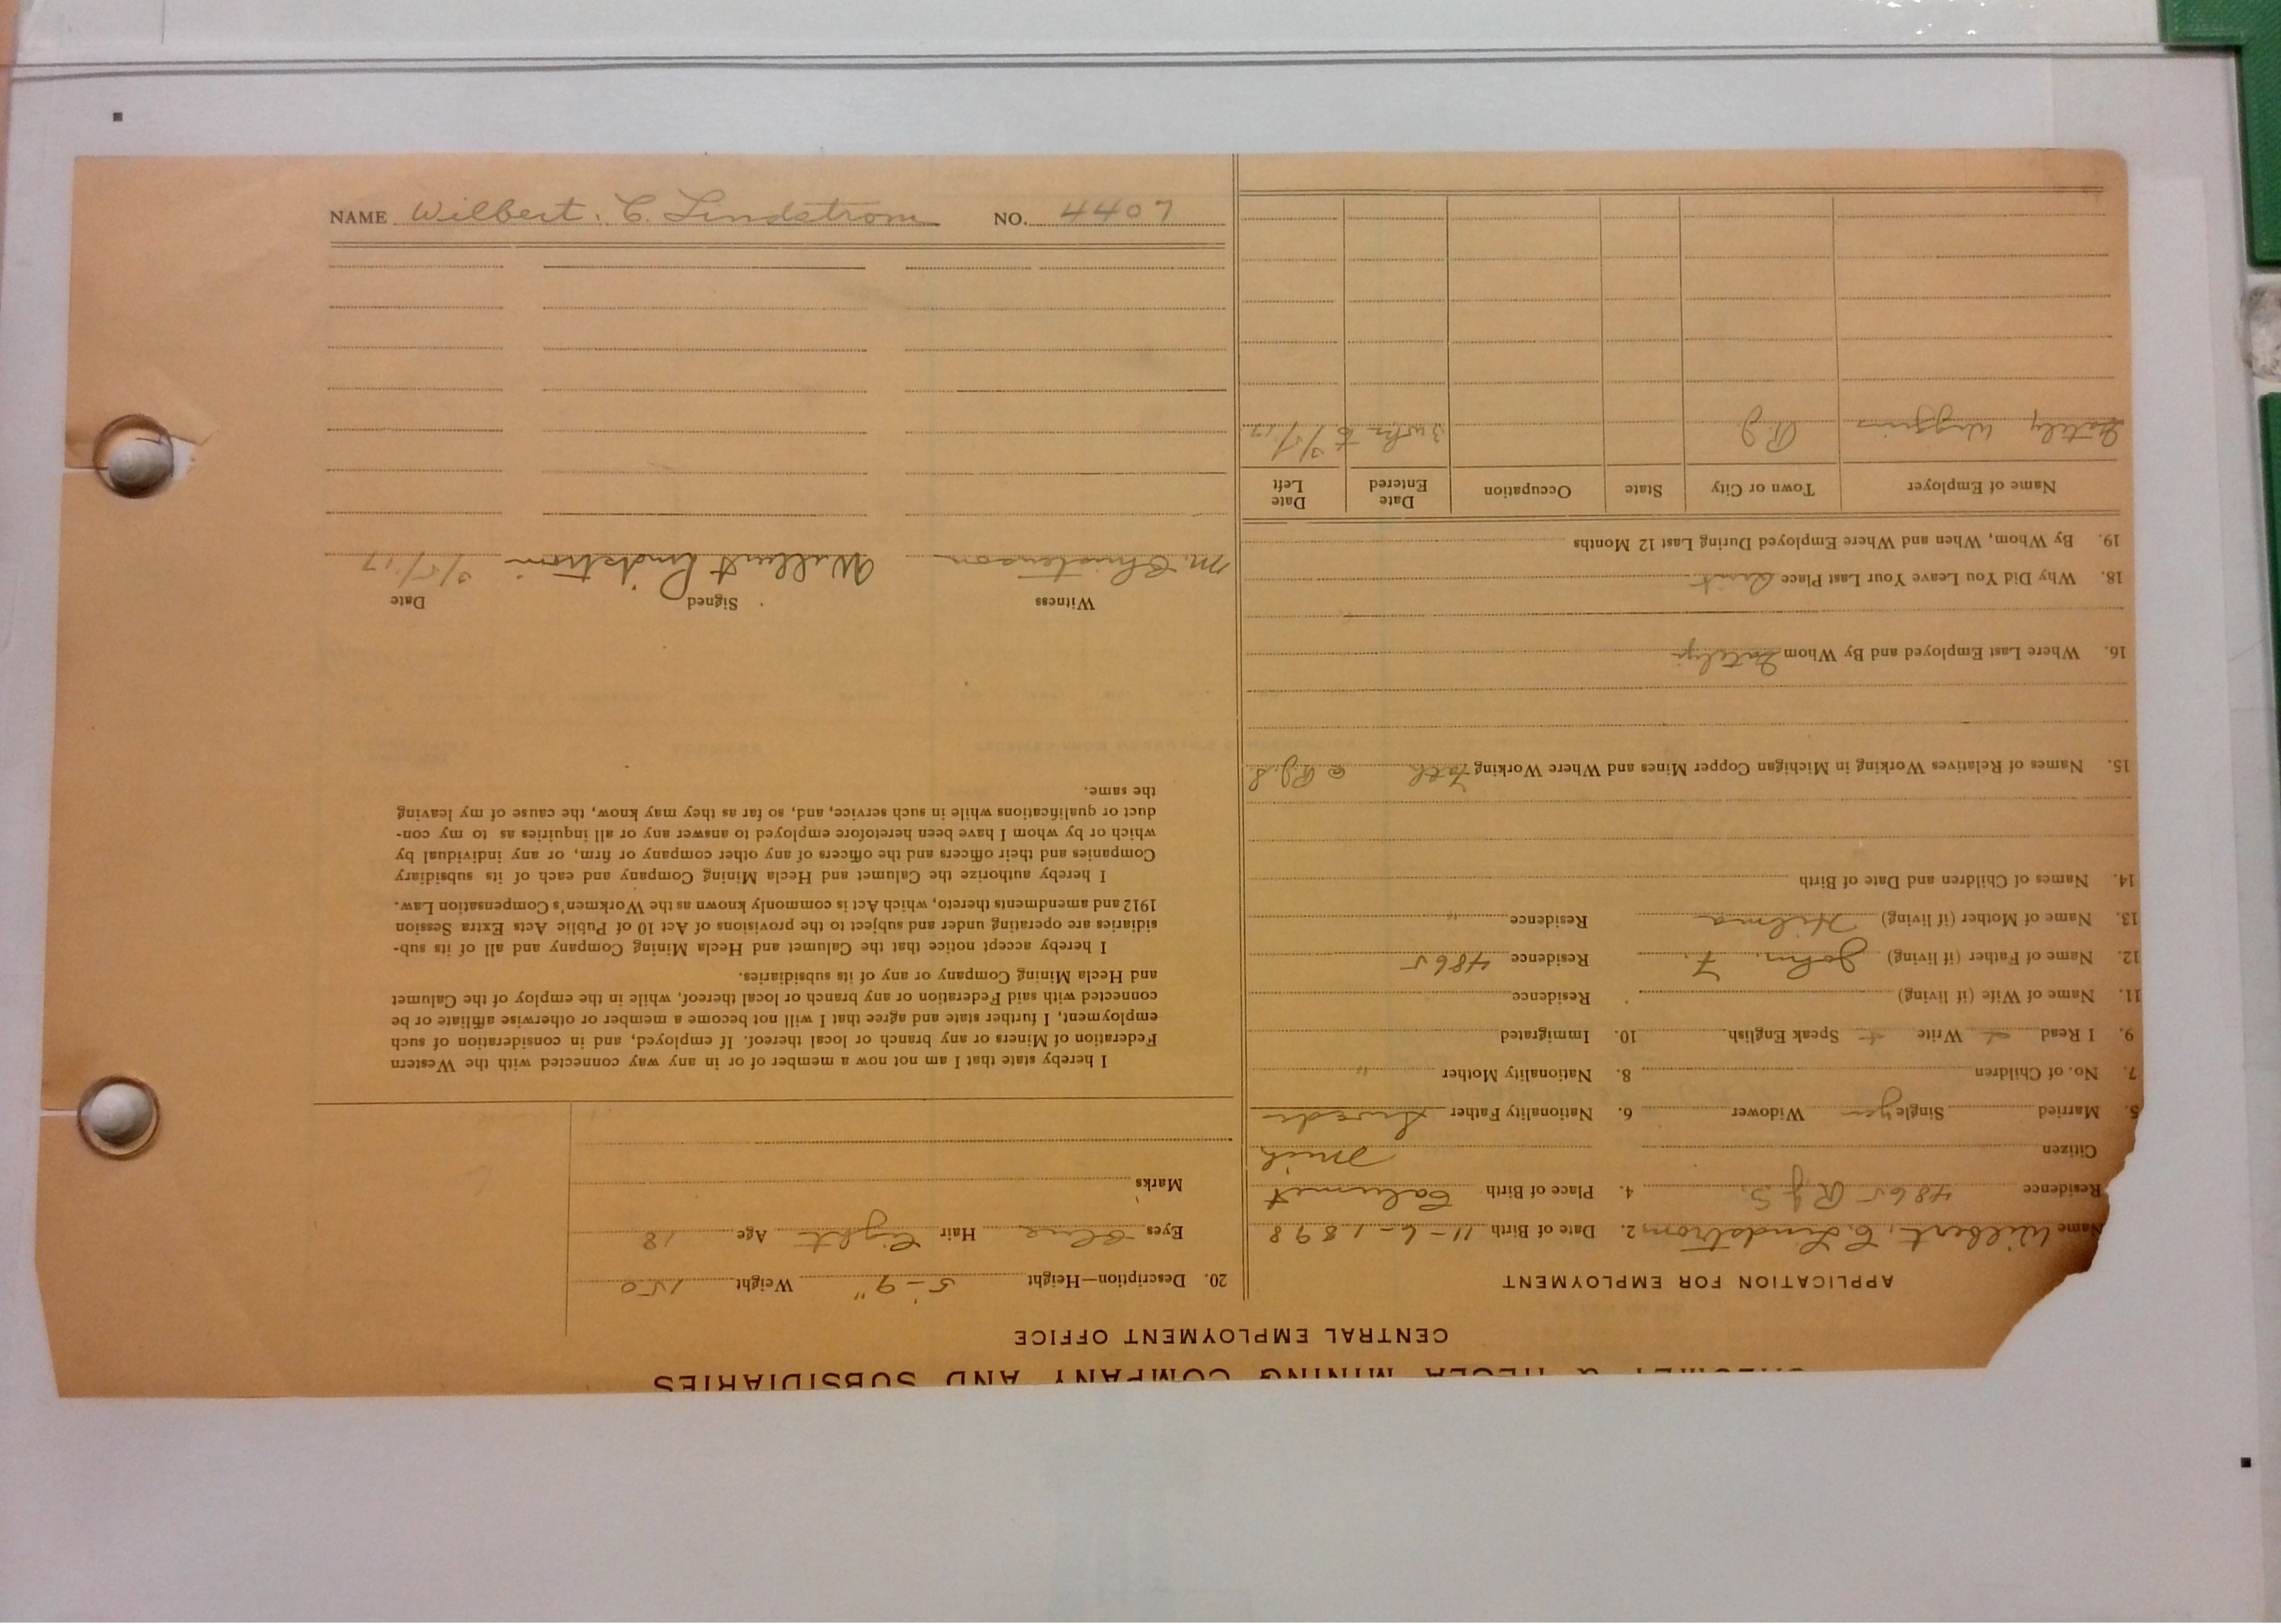 CALUMET & HECLA MINING COMPANY AND SUBSIDIARIES
CENTRAL EMPLOYMENT OFFICE
APPLICATION FOR EMPLOYMENT
Name Wilbert. C. Lindstrom 2. Date of Birth 11-6-1898
Residence 4865 R J S. 4. Place of Birth Calumet
Citizen Mich
5. Married Single yes Widower 6. Nationality Father Swede
7. No. of Children 8. Nationality Mother "
9. I Read Write Speak English 10. Immigrated
11. Name of Wife (if living) Residence
12. Name of Father (if living) John. F. Residence 4865
13. Name of Mother (if living) Hilma Residence "
14. Names of Children and Date of Birth
15. Names of Relatives Working in Michigan Copper Mines and Where Working Fath @ RJS
16. Where Last Employed and By Whom Gately's
18. Why Did You Leave Your Last Place
19. By Whom, When and Where Employed During Last 12 Months
Name of Employer Town or City State Occupation Date Entered Date Left
Gately Wiggins R J 3 wks to 3/5/17
20. Description—Height 5'-9" Weight 150
Eyes Blue Hair Light Age 18
Marks
I hereby state that I am not now a member of or in any way connected with the Western
Federation of Miners or any branch or local thereof. If employed, and in consideration of such
employment, I further state and agree that I will not become a member or otherwise affiliate or be
connected with said Federation or any branch or local thereof, while in the employ of the Calumet
and Hecla Mining Company or any of its subsidiaries.
I hereby accept notice that the Calumet and Hecla Mining Company and all of its sub-
sidiaries are operating under and subject to the provisions of Act 10 of Public Acts Extra Session
1912 and amendments thereto, which Act is commonly known as the Workmen's Compensation Law.
I hereby authorize the Calumet and Hecla Mining Company and each of its subsidiary
Companies and their officers and the officers of any other company or firm, or any individual by
which or by whom I have been heretofore employed to answer any or all inquiries as to my con-
duct or qualifications while in such service, and, so far as they may know, the cause of my leaving
the same.
Witness Signed Date
M. Christenson Wilbert Lindstrom 3/5/17
NAME Wilbert. C. Lindstrom NO. 4407